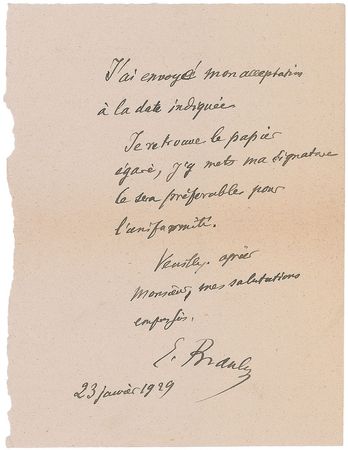 J'ai envoyé mon acceptation
à la date indiquée
Je retrouve le papier
égaré, j'y mets ma signature
le sera préférable pour
l'uniformité.
Veuillez agréer
Monsieur, mes salutations
empressées.
E. Branly
23 janvier 1929